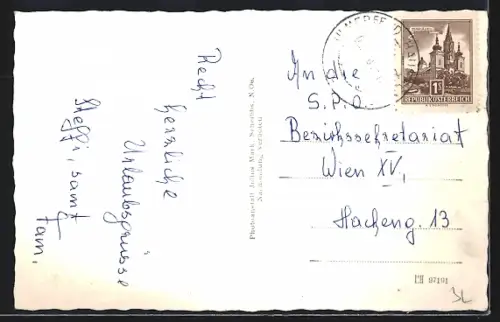 Recht
herzliche
Urlaubsgrüsse
Steffi, samt
Fam.
Photoanstalt Julius Mark, Scheibbs, N.Oe.
Nachahmung verboten
97191
1S
REPUBLIK ÖSTERREICH
An die
S.P.O.
Bezirkssekretariat
Wien XV,
Hackeng. 13